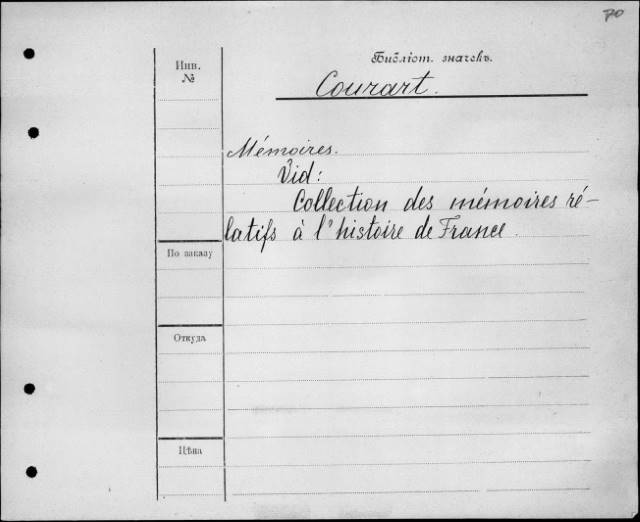 70
Инв.
№
Библіот. значекъ.
Courart.
Mémoires.
Vid:
Collection des mémoires ré-
latifs à l'histoire de France.
По заказу
Откуда
Цѣна